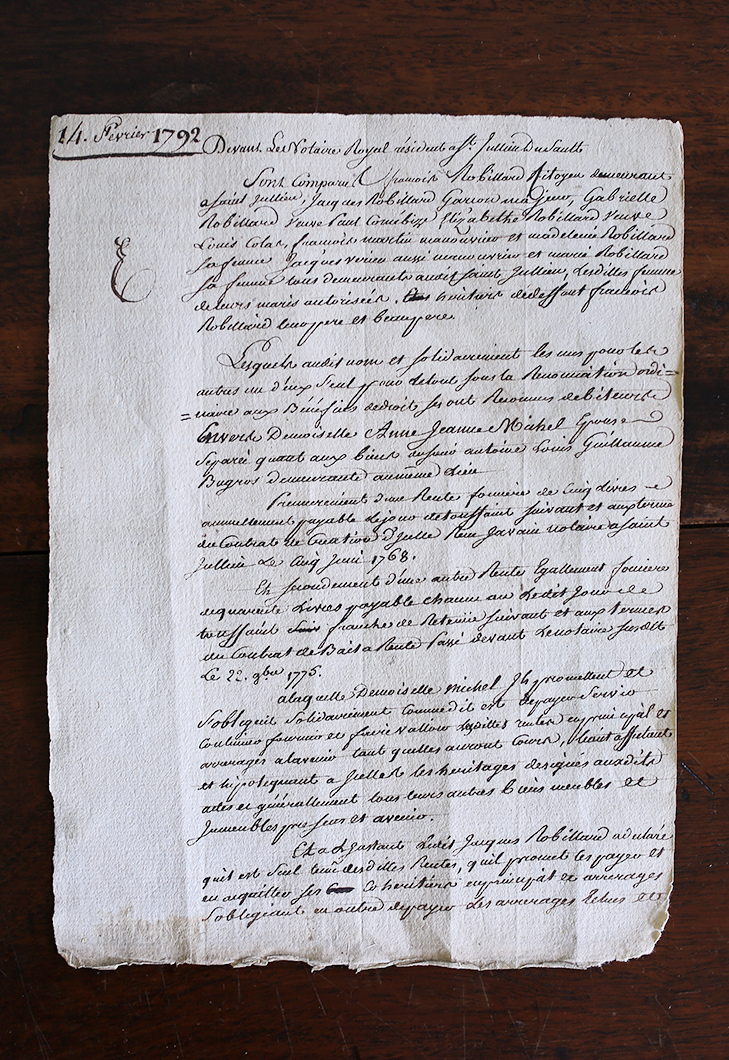 14. Fevrier 1792
Devant Le Notaire Royal résident a St. Jullien Du Sault
Sont Comparu françois Robillard Citoyen demeurant
a Saint Jullien, Jacques Robillard Garcon majeur, Gabrielle
Robillard Veuve Paul Elizabethe Robillard Veuve
Louis Colas, francois martin manouvrier et madeleine Robillard
Sa femme Jacques verien aussi manouvrier et marie Robillard
Sa femme tous demeurants audit Saint Jullien, Lesdittes femmes
de leurs maris autorisées, heritiers dedeffunt francois
Robillard leur pere et beaupere.
Lesquels audit nom et solidairement les uns pour les
autres un d'eux seul pour le tout sous la Renonciation ordi=
=naire aux Bénéfices de droit se sont Reconnus debiteurs
Envers Demoiselle Anne Jeanne Michel Epouse
Separée quant aux biens du sieur antoine Louis Guillaume
Bugros demeurante au même Lieu
Premierement d'une Rente fonciere de Cinq Livres
annuellement payable le jour de toussaint suivant et aux termes
du Contrat de Creation d'Icelle Notaire a Saint
Jullien Le Cinq Juin 1768.
Et secondement d'une autre Rente Egallement fonciere
de quarente Livres payable chacun an Ledit Jour de
toussaint franche de Retenue suivant et aux termes
du Contrat de Bail a Rente Passé devant Le notaire susdit
Le 22. 9bre 1775.
a laquelle Demoiselle michel Ils promettent et
s'obligent Solidairement comme dit est de payer servir
Continuer fournir et faire valloir lesdittes rentes en principal et
arrerages a l'avenir tant quelles auront Cours, affectant
et hipotequant a Icelles les heritages designés auxdits
actes et généralement tous leurs autres biens meubles et
Immeubles presens et avenir.
Et a L'Instant Ledit Jacques Robillard a declaré
qu'il est seul tenu desdittes Rentes, qu'il promet les payer et
en acquitter ses Coheritiers en principal et arrerages
s'obligeant en outre de payer Les arrerages Echus et